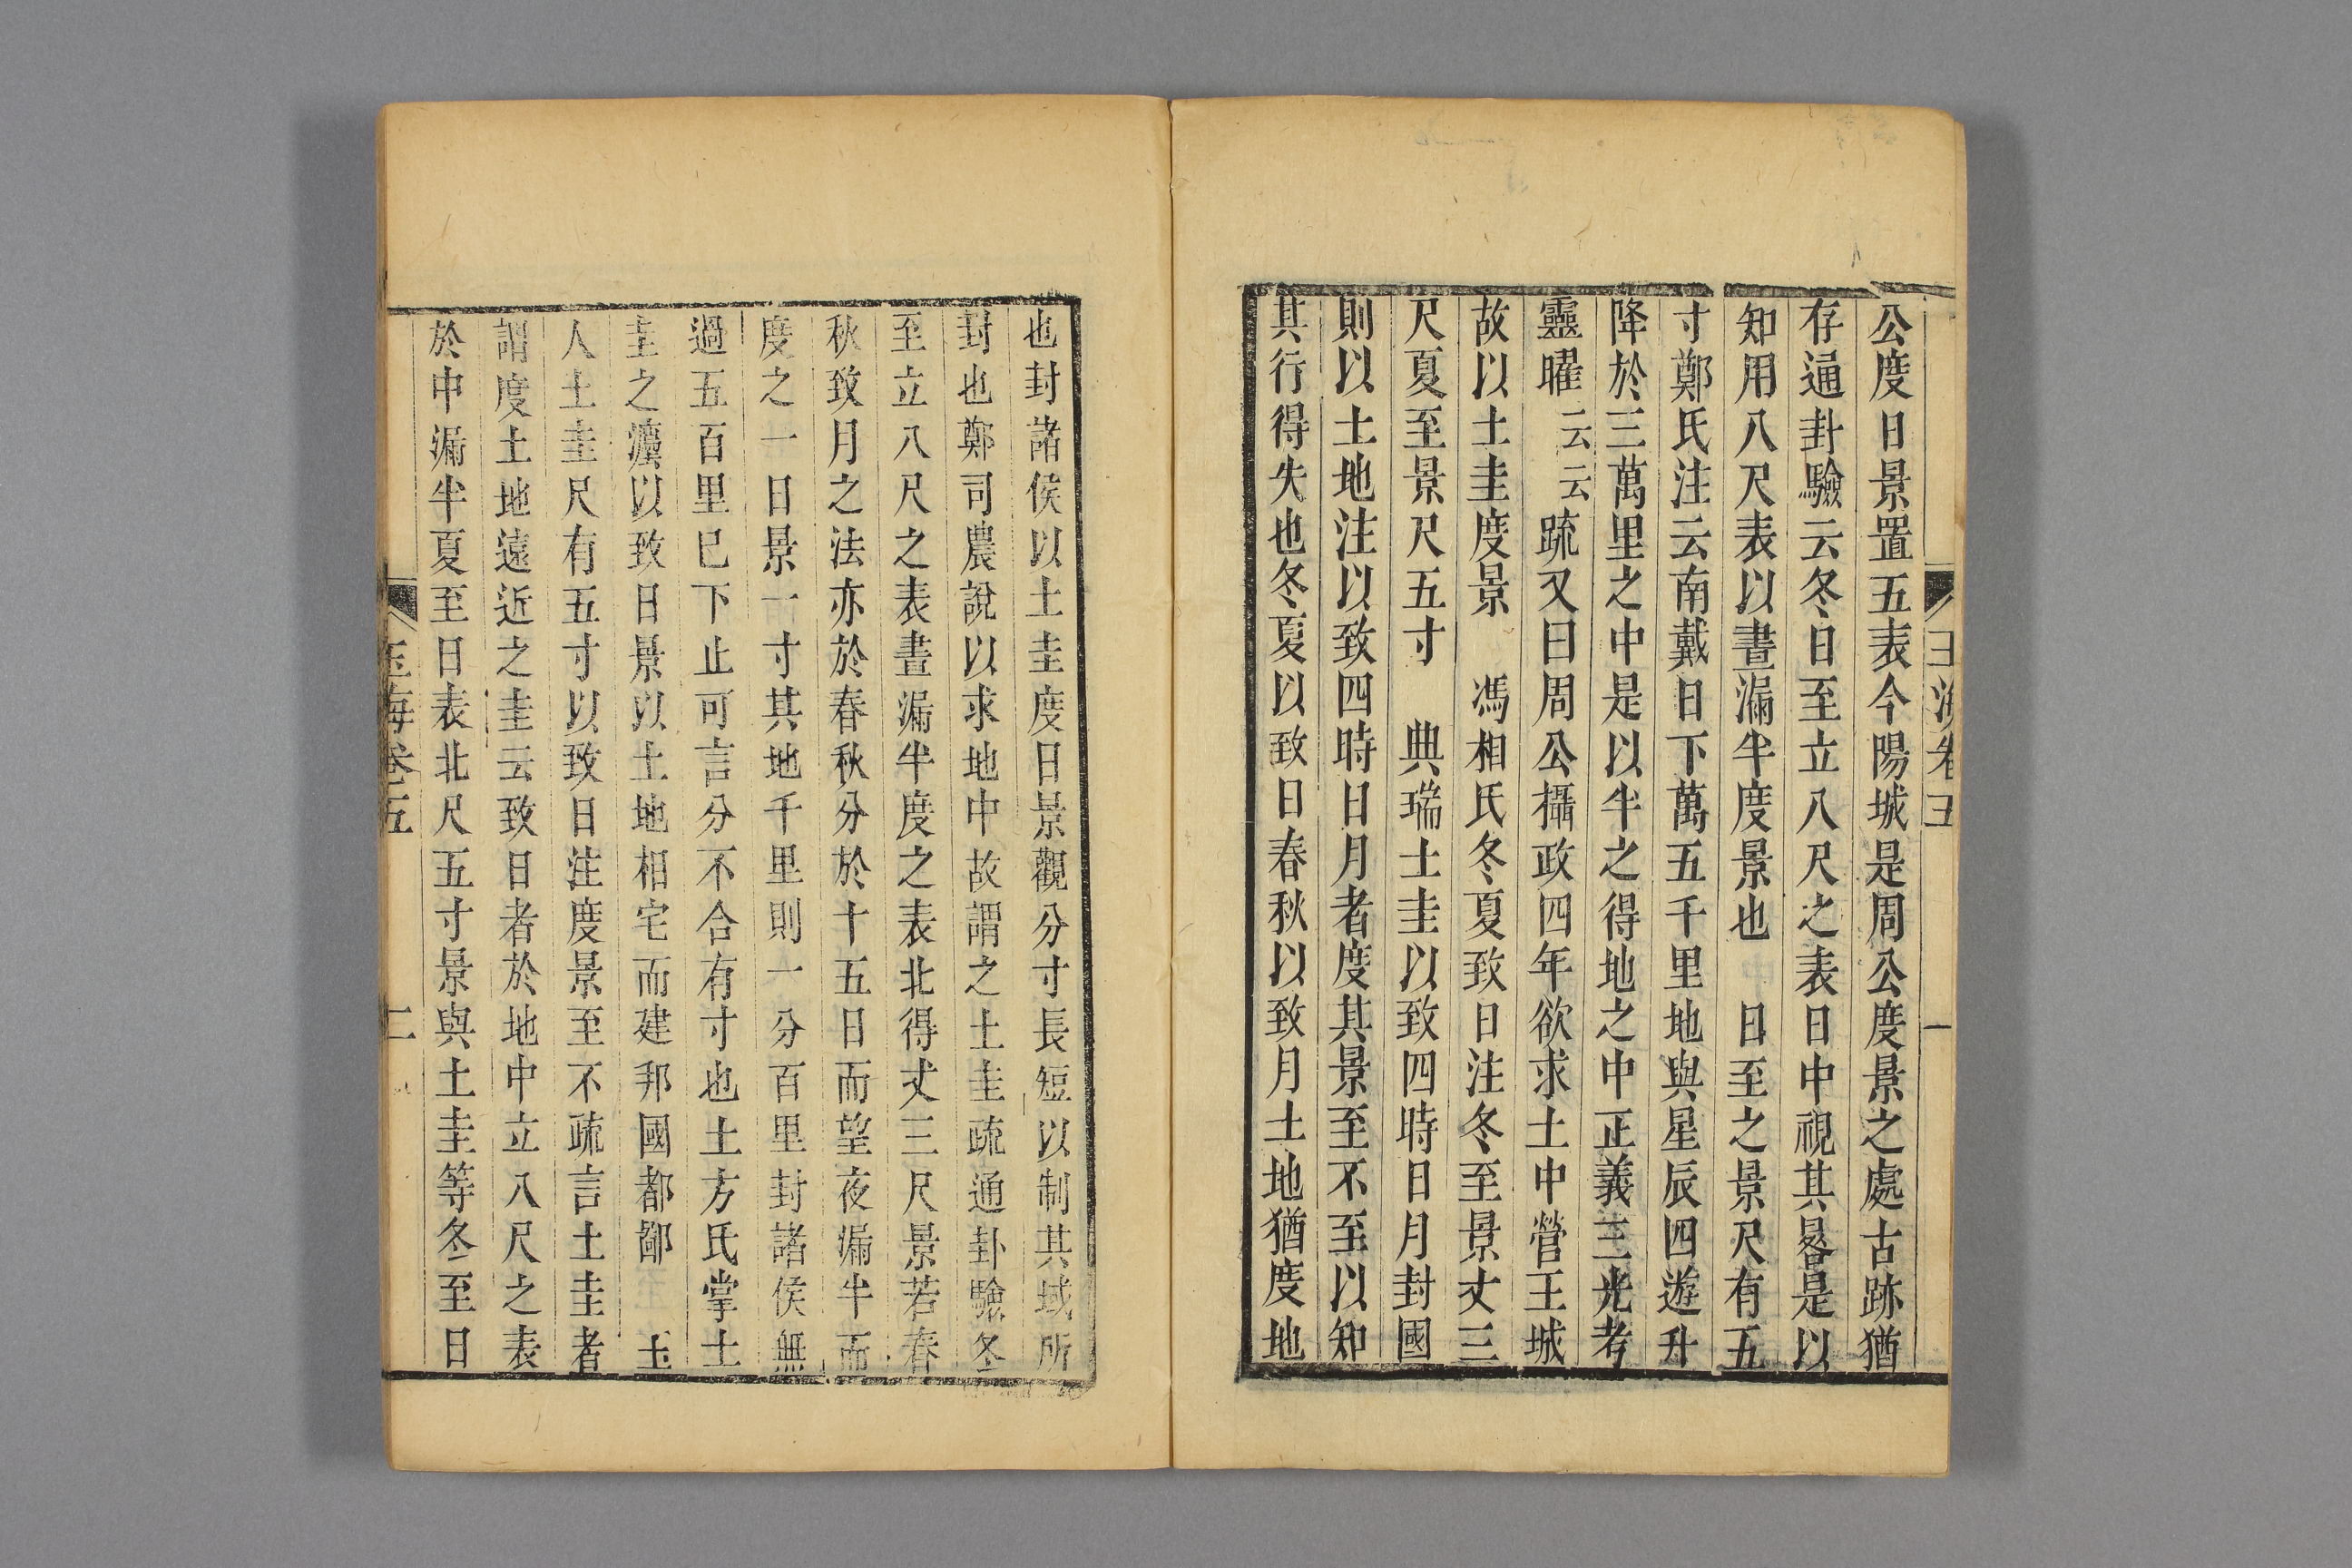 玉海卷五
一
公度日景置五表今陽城是周公度景之處古跡猶
存通卦驗云冬日至立八尺之表日中視其晷是以
知用八尺表以晝漏半度景也 日至之景尺有五
寸鄭氏注云南戴日下萬五千里地與星辰四遊升
降於三萬里之中是以半之得地之中正義三光考
靈曜云云疏又曰周公攝政四年欲求土中營王城
故以土圭度景 馮相氏冬夏致日注冬至景丈三
尺夏至景尺五寸 典瑞土圭以致四時日月封國
則以土地注以致四時日月者度其景至不至以知
其行得失也冬夏以致日春秋以致月土地猶度地
也封諸侯以土圭度日景觀分寸長短以制其域所
封也鄭司農說以求地中故謂之土圭疏通卦驗冬
至立八尺之表晝漏半度之表北得丈三尺景若春
秋致月之法亦於春秋分於十五日而望夜漏半而
度之一日景一寸其地千里則一分百里封諸侯無
過五百里巳下止可言分不合有寸也土方氏掌土
圭之灋以致日景以土地相宅而建邦國都鄙 玉
人土圭尺有五寸以致日注度景至不疏言土圭者
謂度土地遠近之圭云致日者於地中立八尺之表
於中漏半夏至日表北尺五寸景與土圭等冬至日
玉海卷五
二